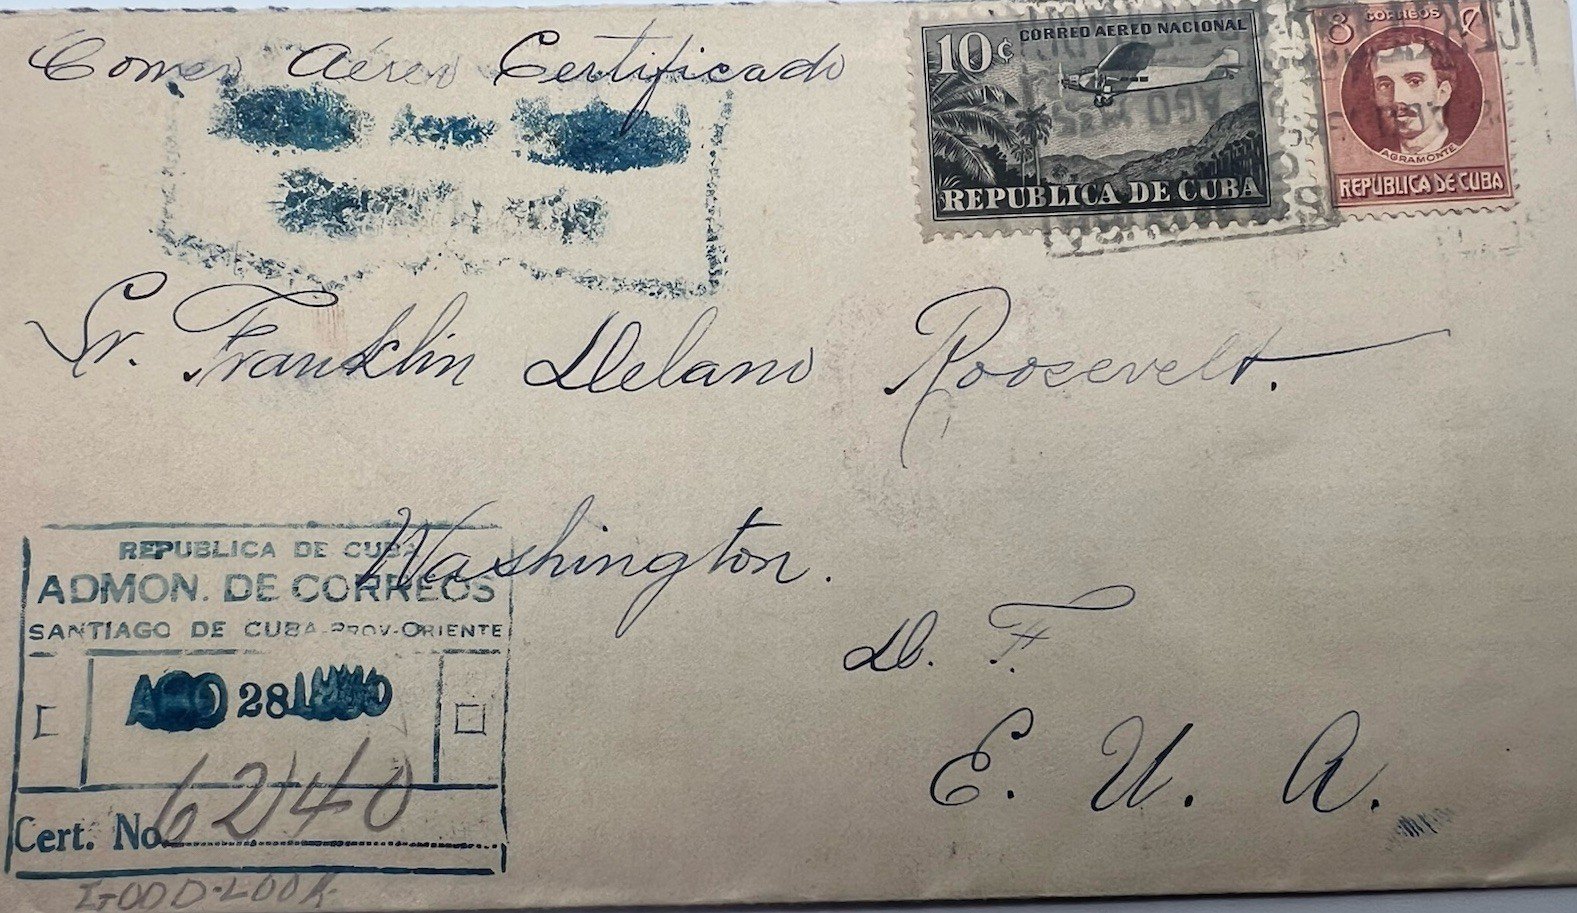 Correo Aéreo Certificado
CORREO AEREO NACIONAL
10¢
REPUBLICA DE CUBA
8 CORREOS ¢
AGRAMONTE
REPUBLICA DE CUBA
AGO
Sr. Franklin Delano Roosevelt.
Washington.
D. F.
E. U. A.
REPUBLICA DE CUBA
ADMON. DE CORREOS
SANTIAGO DE CUBA-PROV-ORIENTE
AGO 28
Cert. No. 6240
GOOD-LOOK